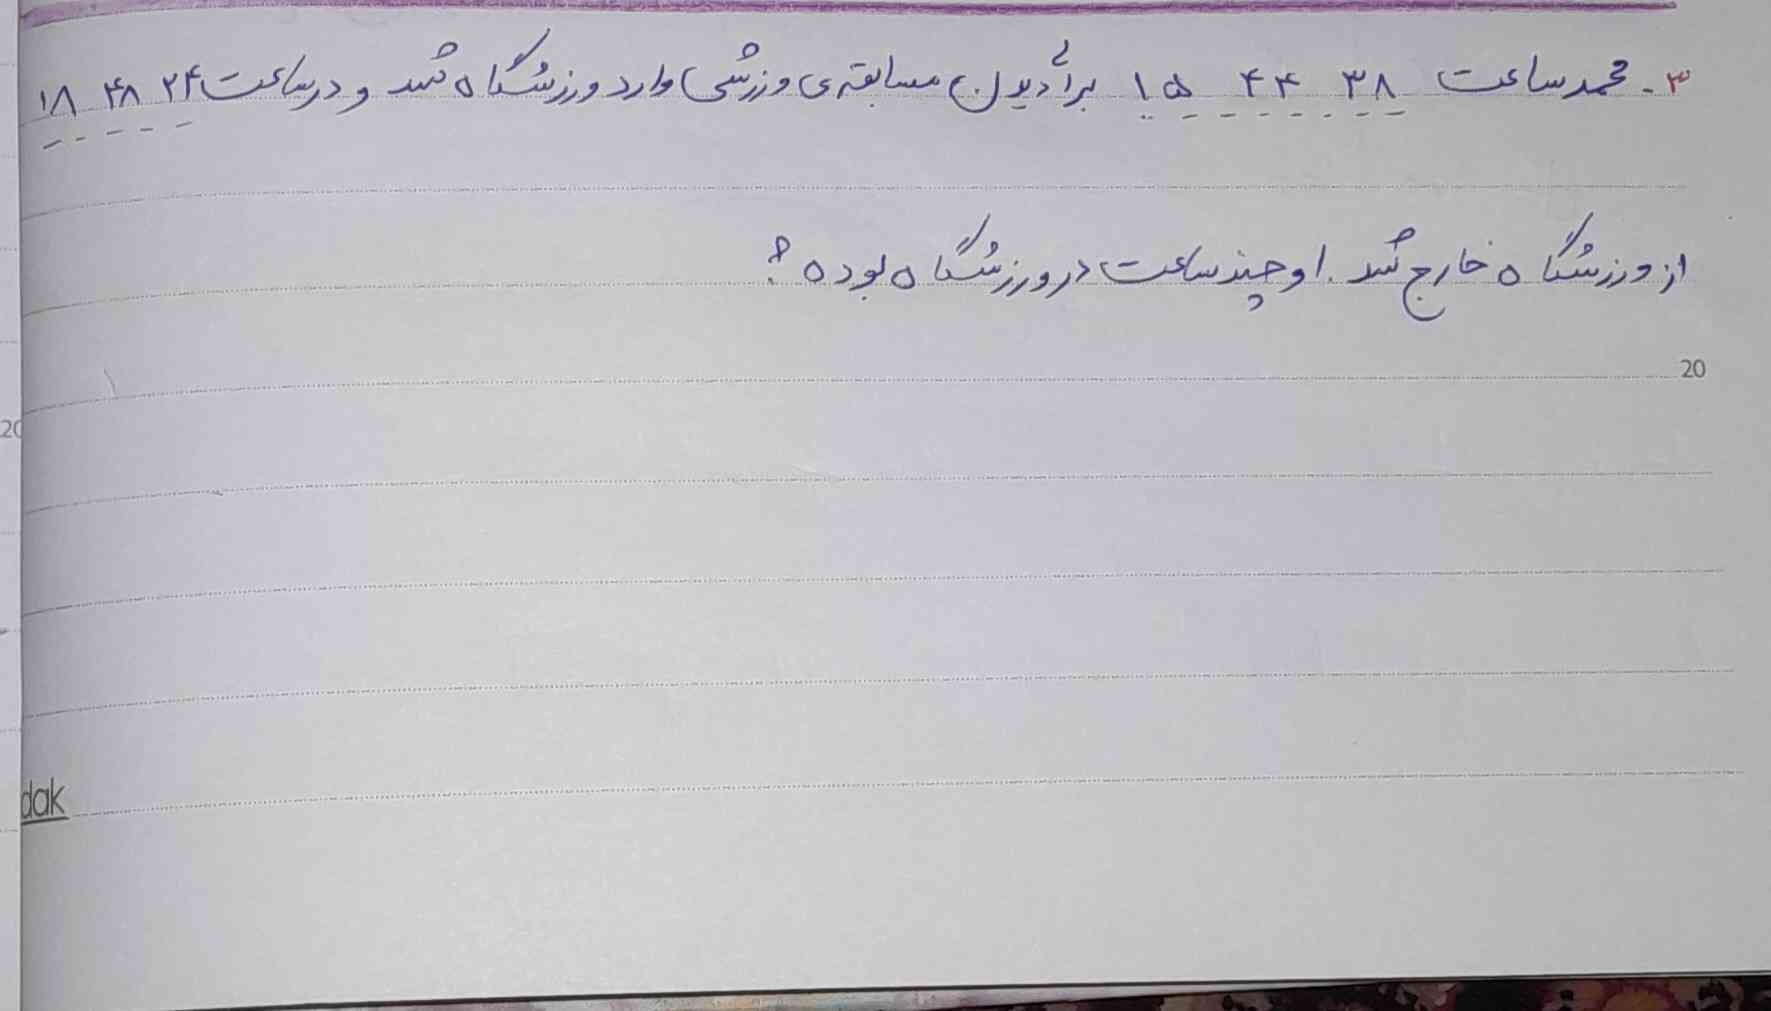 ۳- محمد ساعت ۳۸ ۴۴ ۱۵ برای دیدن مسابقه‌ی ورزشی وارد ورزشگاه شد و در ساعت ۲۴ ۴۸ ۱۸
از ورزشگاه خارج شد. او چند ساعت در ورزشگاه بوده؟
20
20
dak